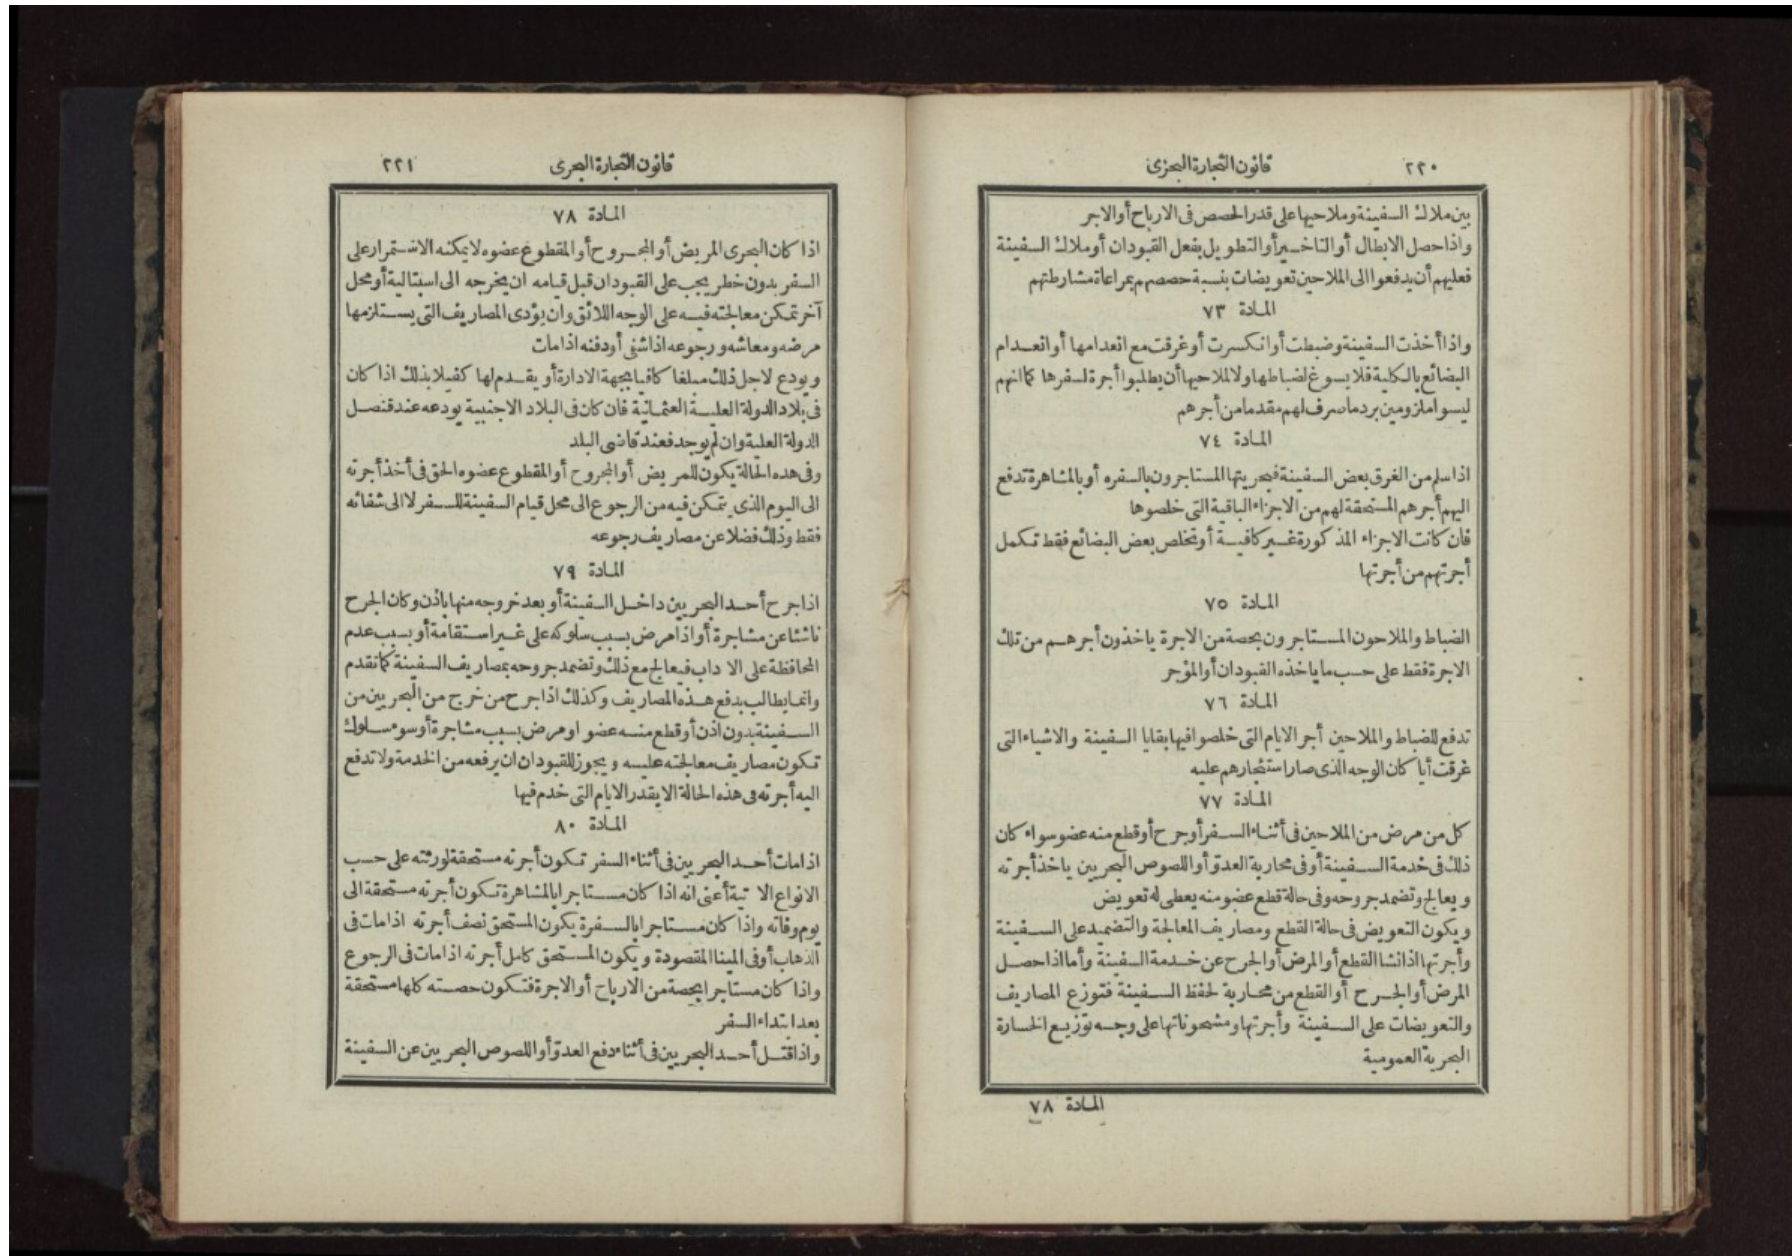 ٢٢٠ قانون التجارة البحرى
بين ملاك السفينة وملاحيها على قدر الحصص فى الارباح أو الاجر
واذا حصل الابطال أو التاخير أو التطويل بفعل القبودان أو ملاك السفينة
فعليهم أن يدفعوا الى الملاحين تعويضات بنسبة حصصهم بمراعاة مشارطتهم
المادة ٧٣
واذا أخذت السفينة وضبطت أو انكسرت أو غرقت مع انعدامها أو انعدام
البضائع بالكلية فلا يسوغ لضباطها ولا لملاحيها أن يطلبوا أجرة لسفرها كما انهم
ليسوا ملزومين برد ما صرف لهم مقدما من أجرهم
المادة ٧٤
اذا سلم من الغرق بعض السفينة فبحريتها المستاجرون بالسفره أو بالمشاهرة تدفع
اليهم أجرهم المستحقة لهم من الاجزاء الباقية التى خلصوها
فان كانت الاجزاء المذكورة غير كافية أو تخلص بعض البضائع فقط تكمل
أجرتهم من أجرتها
المادة ٧٥
الضباط والملاحون المستاجرون بحصة من الاجرة ياخذون أجرهم من تلك
الاجرة فقط على حسب ما ياخذه القبودان أو المؤجر
المادة ٧٦
تدفع للضباط والملاحين أجر الايام التى خلصوا فيها بقايا السفينة والاشياء التى
غرقت أيا كان الوجه الذى صار استئجارهم عليه
المادة ٧٧
كل من مرض من الملاحين فى أثناء السفر أو جرح أو قطع منه عضو سواء كان
ذلك فى خدمة السفينة أو فى محاربة العدوّ أو اللصوص البحريين ياخذ أجرته
ويعالج وتضمد جروحه وفى حالة قطع عضو منه يعطى له تعويض
ويكون التعويض فى حالة القطع ومصاريف المعالجة والتضميد على السفينة
وأجرتها اذا نشا القطع أو المرض أو الجرح عن خدمة السفينة وأما اذا حصل
المرض أو الجرح أو القطع من محاربة لحفظ السفينة فتوزع المصاريف
والتعويضات على السفينة وأجرتها ومشحوناتها على وجه توزيع الخسارة
البحرية العمومية
المادة ٧٨
قانون التجارة البحرى ٢٢١
المادة ٧٨
اذا كان البحرى المريض أو المجروح أو المقطوع عضوه لا يمكنه الاستمرار على
السفر بدون خطر يجب على القبودان قبل قيامه ان يخرجه الى اسبتالية أو محل
آخر تمكن معالجته فيه على الوجه اللائق وان يؤدى المصاريف التى يستلزمها
مرضه ومعاشه ورجوعه اذا شفى أو دفنه اذا مات
ويودع لاجل ذلك مبلغا كافيا بجهة الادارة أو يقدم لها كفيلا بذلك اذا كان
فى بلاد الدولة العلية العثمانية فان كان فى البلاد الاجنبية يودعه عند قنصل
الدولة العلية وان لم يوجد فعند قاضى البلد
وفى هذه الحالة يكون للمريض أو المجروح أو المقطوع عضوه الحق فى أخذ أجرته
الى اليوم الذى يتمكن فيه من الرجوع الى محل قيام السفينة للسفر لا الى شفائه
فقط وذلك فضلا عن مصاريف رجوعه
المادة ٧٩
اذا جرح أحد البحريين داخل السفينة أو بعد خروجه منها باذن وكان الجرح
ناشئا عن مشاجرة أو اذا مرض بسبب سلوكه على غير استقامة أو بسبب عدم
المحافظة على الاداب فيعالج مع ذلك وتضمد جروحه بمصاريف السفينة كما تقدم
وانما يطالب بدفع هذه المصاريف وكذلك اذا جرح من خرج من البحريين من
السفينة بدون اذن أو قطع منه عضو او مرض بسبب مشاجرة أو سوء سلوك
تكون مصاريف معالجته عليه ويجوز للقبودان ان يرفعه من الخدمة ولا تدفع
اليه أجرته فى هذه الحالة الا بقدر الايام التى خدم فيها
المادة ٨٠
اذا مات أحد البحريين فى أثناء السفر تكون أجرته مستحقة لورثته على حسب
الانواع الاتية أعنى انه اذا كان مستاجرا بالمشاهرة تكون أجرته مستحقة الى
يوم وفاته واذا كان مستاجرا بالسفرة يكون المستحق نصف أجرته اذا مات فى
الذهاب أو فى المينا المقصودة ويكون المستحق كامل أجرته اذا مات فى الرجوع
واذا كان مستاجرا بحصة من الارباح أو الاجرة فتكون حصته كلها مستحقة
بعد ابتداء السفر
واذا قتل أحد البحريين فى أثناء دفع العدوّ أو اللصوص البحريين عن السفينة